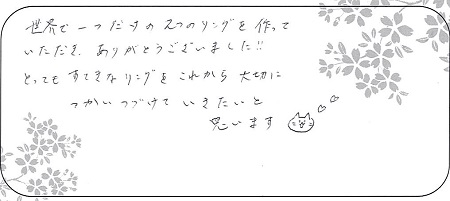 世界で一つだけの2つのリングを作って
いただき ありがとうございました!!
とっても すてきな リングを これから 大切に
つかい つづけて いきたいと
思います